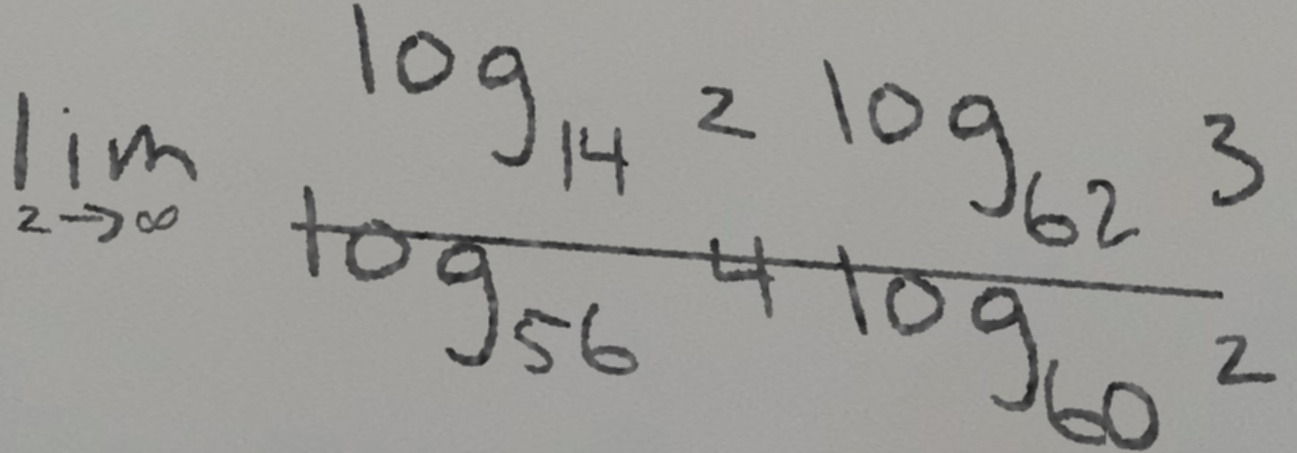 lim z→∞ (log₁₄ z log₆₂ 3) / (log₅₆ 4 log₆₀ z)